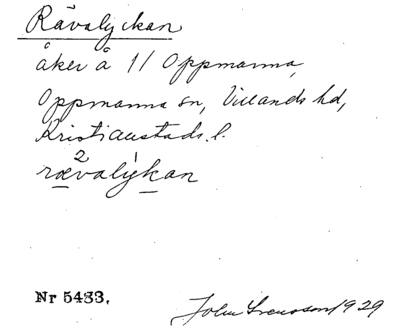 Rävalyckan
åker å 11 Oppmanna,
Oppmanna sn, Villands hd,
Kristianstads l.
rævalykan
Nr 5483.
John Svensson 1929